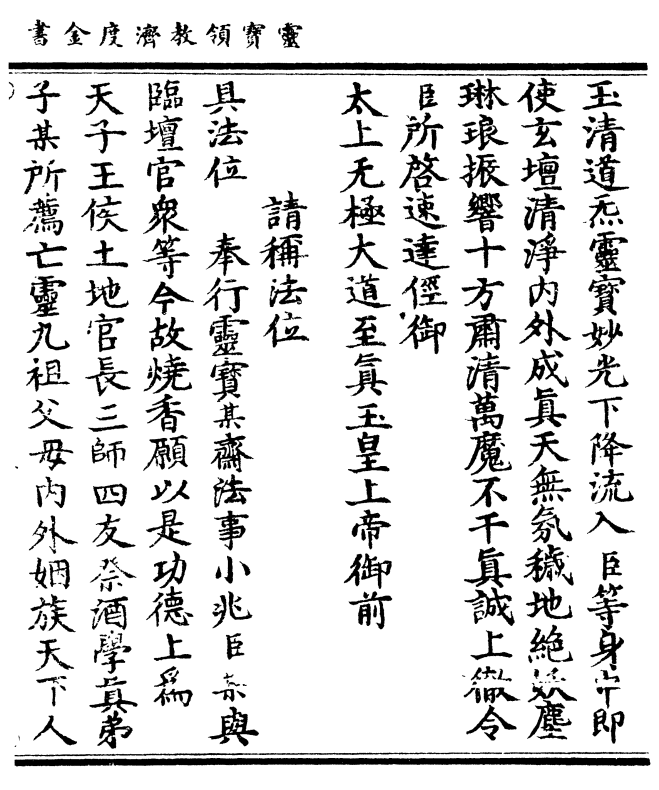 靈寶領教濟度金書
玉清道炁靈寶妙光下降流入臣等身中即
使玄壇清淨內外成眞天無氛穢地絶妖塵
琳琅振響十方肅清萬魔不干眞誠上徹令
臣所啓速達徑御
太上无極大道至眞玉皇上帝御前
請稱法位
具法位　奉行靈寶某齋法事小兆臣某與
臨壇官衆等今故燒香願以是功德上爲
天子王侯土地官長三師四友祭酒學眞弟
子某所薦亡靈九祖父母內外姻族天下人